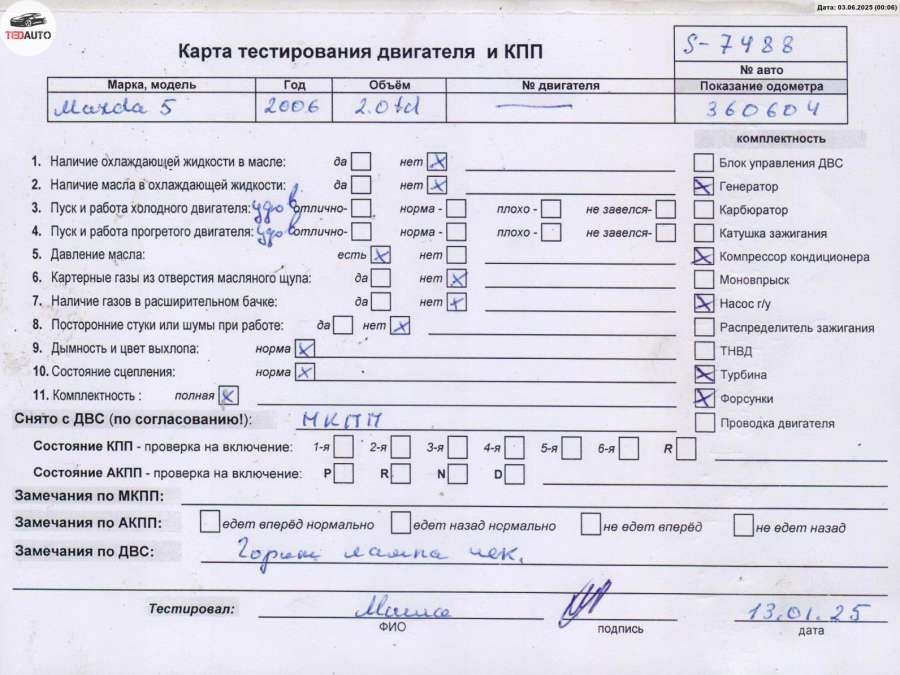 Дата: 03.06.2025 (00:06)
TEDAUTO
Карта тестирования двигателя и КПП
S-7488
№ авто
Марка, модель Год Объём № двигателя Показание одометра
Mazda 5 2006 2.0td — 360604
комплектность
1. Наличие охлаждающей жидкости в масле: да нет X
Блок управления ДВС
2. Наличие масла в охлаждающей жидкости: да нет X
X Генератор
3. Пуск и работа холодного двигателя: удов отлично- норма - плохо - не завелся-
Карбюратор
4. Пуск и работа прогретого двигателя: удов отлично- норма - плохо - не завелся-
Катушка зажигания
5. Давление масла: есть X нет
X Компрессор кондиционера
6. Картерные газы из отверстия масляного щупа: да нет X
Моновпрыск
7. Наличие газов в расширительном бачке: да нет X
X Насос г/у
8. Посторонние стуки или шумы при работе: да нет X
Распределитель зажигания
9. Дымность и цвет выхлопа: норма X
ТНВД
10. Состояние сцепления: норма X
X Турбина
11. Комплектность : полная X
X Форсунки
Снято с ДВС (по согласованию!): МКПП
Проводка двигателя
Состояние КПП - проверка на включение: 1-я 2-я 3-я 4-я 5-я 6-я R
Состояние АКПП - проверка на включение: P R N D
Замечания по МКПП:
Замечания по АКПП: едет вперёд нормально едет назад нормально не едет вперёд не едет назад
Замечания по ДВС: Горит лампа чек.
Тестировал: 13.01.25
ФИО подпись дата